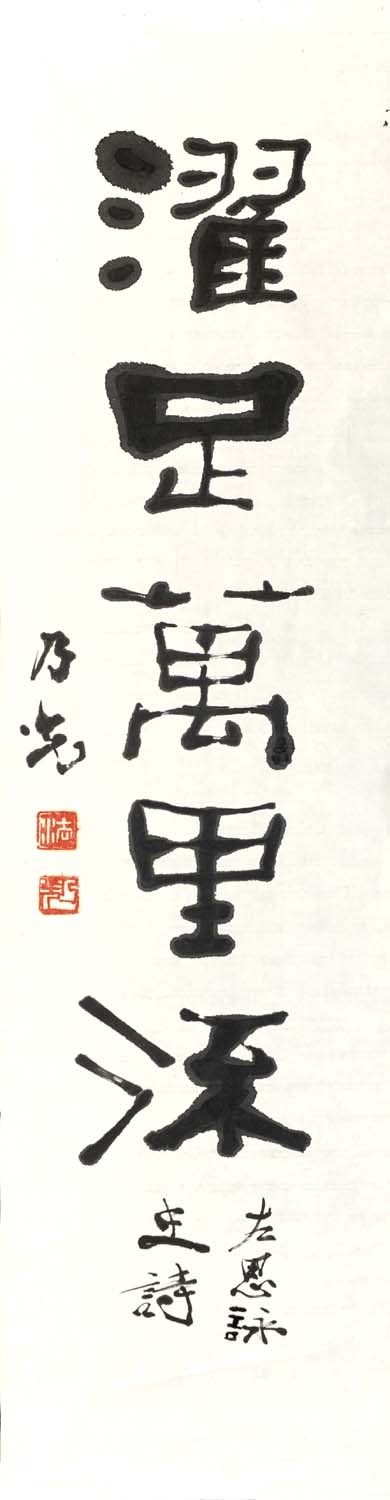 濯足萬里流
左思詠
史詩
乃光